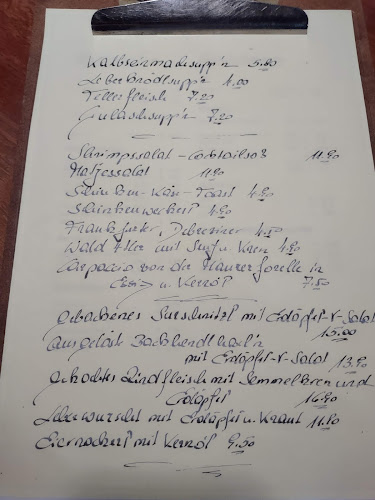 Kalbseinmachsupp'n 5.80
Leberknödlsupp'n 4.00
Tellerfleisch 7.20
Gulaschsupp'n 7.20
Shrimpssalat - Cocktailsoß 11.90
Matjessalat 11.90
Schinken-Käs-Toast 4.90
Schinkenweckerl 4.90
Frankfurter, Debreziner 4.50
Wald 4tler mit Senf u. Kren 4.90
Carpaccio von der Maurer forelle in
Essig u. Kernöl 7.50
gebackenes Surschnitzl mit Erdäpfel-V-Salat
15.00
ausgelöste Backhendl
mit Erdäpfel-V-Salat 13.90
gekochtes Rindfleisch mit Semmelkren und
Erdäpfel 16.90
Leberwurscht mit Erdäpfel u. Kraut 11.90
Eiernockerl mit Kernöl 9.50